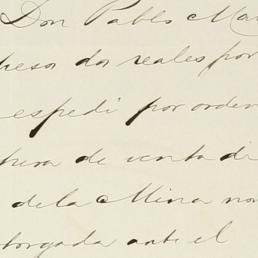 Don Pablo Mar
pesos dos reales por
espedi por orden
tura de venta di
de la Mina no
torgada ante el